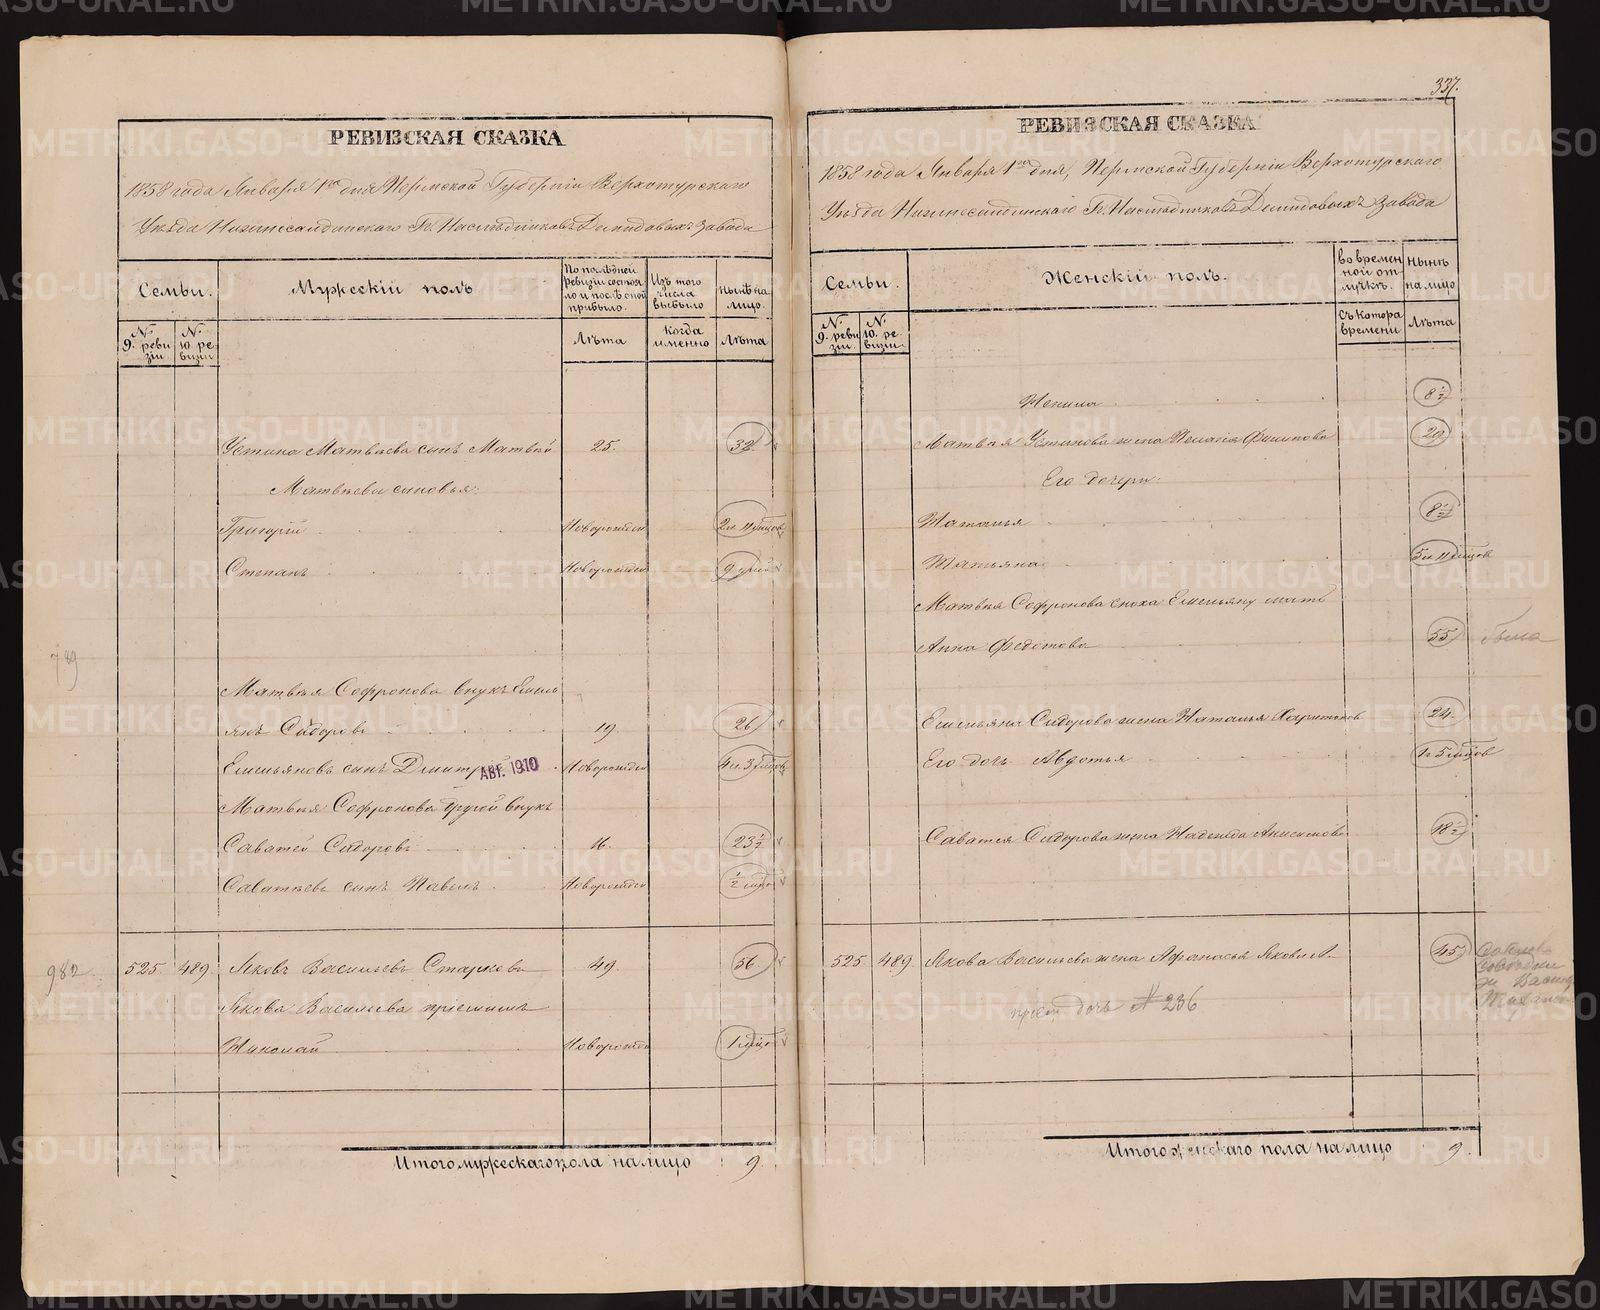 337.
РЕВИЗСКАЯ СКАЗКА
1858 года Января 1го дня Пермской Губернiи Верхотурскаго
Уѣзда Нижнесалдинскаго Гг. Наслѣдниковъ Демидовыхъ Завода
Семьи.
Мужескiй полъ
По послѣдней ревизiи состояло и послѣ оной прибыло.
Изъ того числа выбыло
Нынѣ на лицо.
№ 9. ревизiи
№ 10. ревизiи
Лѣта
когда именно
Лѣта
Устина Матвѣева сынъ Матвѣй 25. 32
Матвѣевы сыновья:
Григорiй Новорожден 2 и 11 мѣцов
Степанъ Новорожден 9 дней
789
Матвѣя Софронова внукъ Емель
янъ Сидоровъ 19. 26
Емельяновъ сынъ Дмитр Новорожден 4 и 3 мѣцов
АВГ. 1910
Матвѣя Софронова другой внукъ
Саватей Сидоровъ 16. 23½
Саватѣевъ сынъ Павелъ Новорожден ½ мѣцо
982 525 489 Яковъ Васильевъ Старковъ 49 56
Якова Васильева прiемышъ
Николай Новорожде 1 мѣцо
Итого мужескаго пола на лицо 9.
РЕВИЗСКАЯ СКАЗКА
1858 года Января 1го дня, Пермской Губернiи Верхотурскаго
Уѣзда Нижнесалдинскаго Гг. Наслѣдниковъ Демидовыхъ Завода
Семьи.
Женскiй полъ.
во времен ной от лучкѣ.
Нынѣ на лицо
№ 9. ревизiи.
№ 10. ревизiи.
Съ котора времени
Лѣта
Ненила 8½
Матвѣя Устинова жена Пелагiя Филипова 29
Его дочери:
Наталья 8½
Татьяна 5 и 11 мѣцов
Матвѣя Софронова сноха Емельяну мать
Анна Федотова 55
Емельяна Сидорова жена Наталья Харитонов 24
Его дочь Авдотья 1 и 5 мѣцов
Саватея Сидорова жена Надежда Анисимова 18½
525 489 Якова Васильева жена Афанасья Яковл 45
дочь № 236
Итого женскаго пола на лицо 9.
METRIKI.GASO-URAL.RU